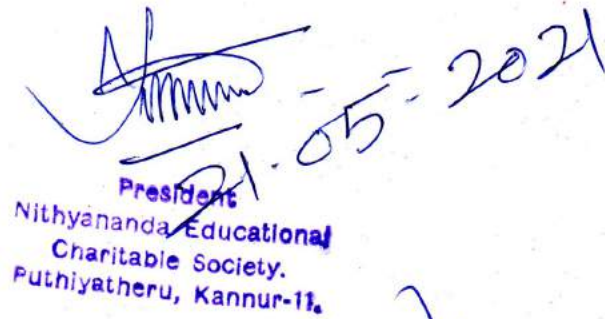 21-05-2021
President
Nithyananda Educational
Charitable Society.
Puthiyatheru, Kannur-11.